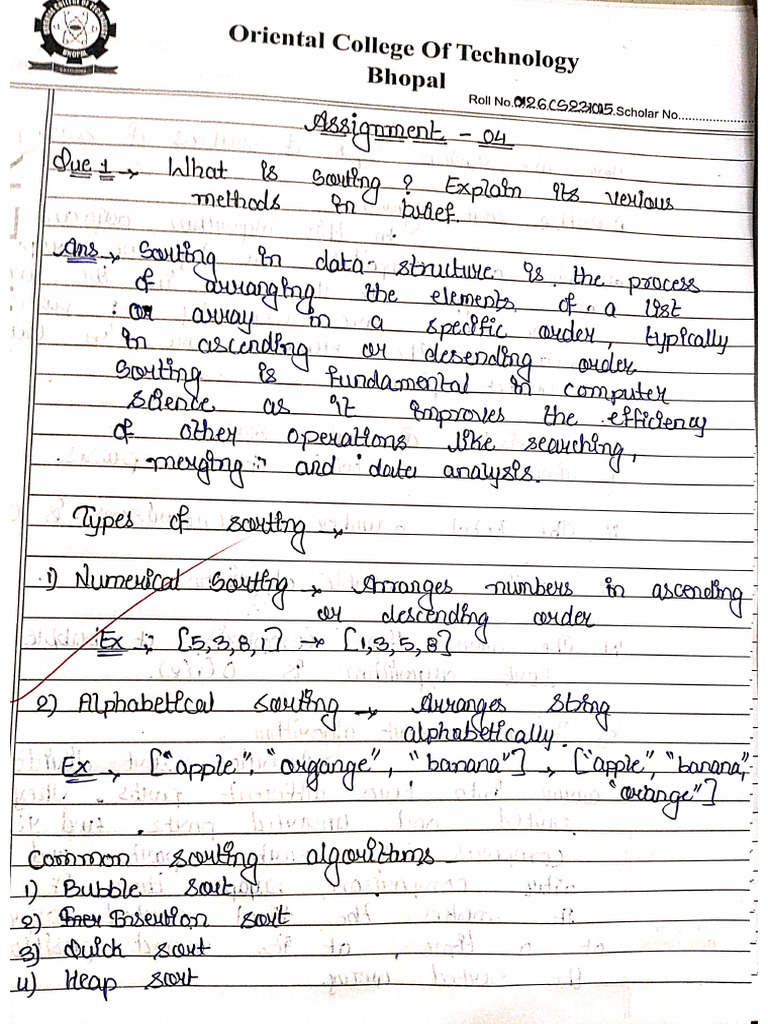 Oriental College Of Technology
Bhopal
Roll No. 0126CS221015 Scholar No.
Assignment - 04
Que 1 → What is sorting? Explain its verious
methods in brief.
Ans → Sorting in data structure is the process
of arranging the elements of a list
or array in a specific order, typically
in ascending or desending order
Sorting is fundamental in computer
science as it improves the efficiency
of other operations like searching,
merging and data analysis.
Types of sorting →
1) Numerical Sorting → Arranges numbers in ascending
or descending order
Ex → [5,3,8,1] → [1,3,5,8]
2) Alphabetical sorting → Arranges sting
alphabetically.
Ex → ["apple", "organge", "banana"] → ["apple", "banana",
"orange"]
Common sorting algorithms -
1) Bubble sort
2) Insertion sort
3) Quick sort
4) Heap sort